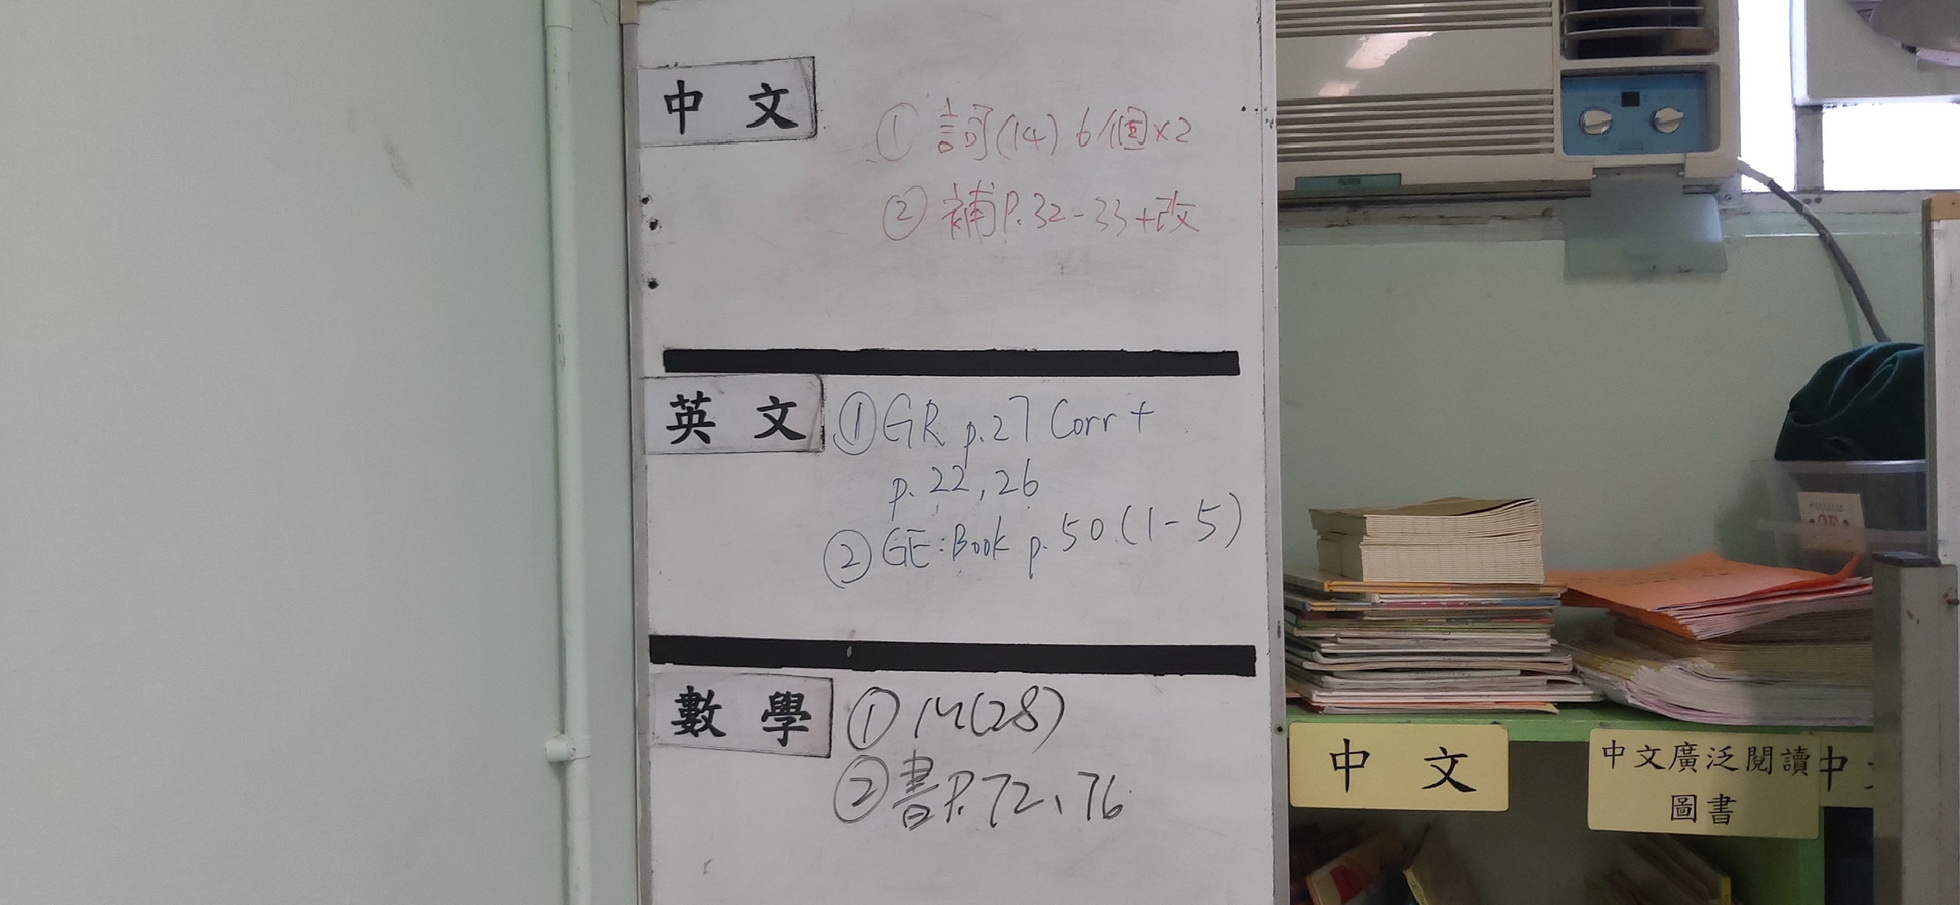 中文
① 詞(14) 6個x2
② 補P.32-33+改
英文
① GR p.27 Corr +
p.22, 26
② GE: Book p.50 (1-5)
數學
① M(28)
② 書P.72、76
中文
中文廣泛閱讀
圖書
中